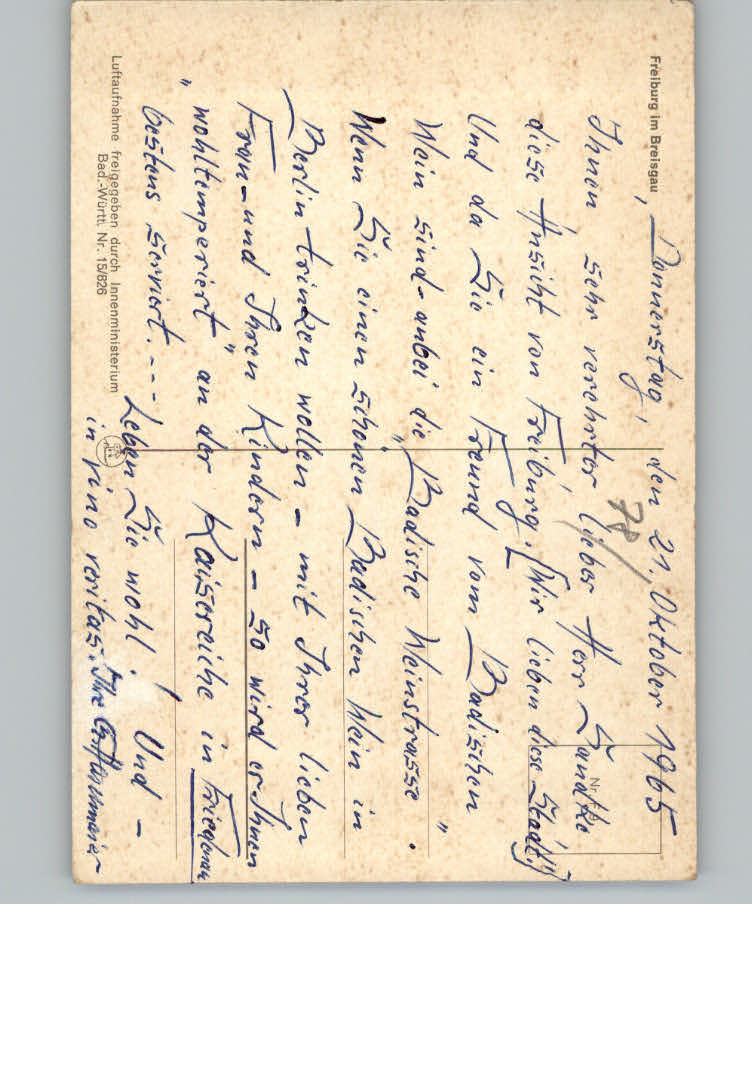 Freiburg im Breisgau
, Donnerstag, den 21. Oktober 1965
78
Ihnen sehr verehrter lieber Herr
diese Ansicht von Freiburg. [Wir lieben diese Stadt!]
Und da Sie ein Freund vom Badischen
Wein sind - anbei die „Badische Weinstrasse".
Wenn Sie einen schönen Badischen Wein in
Berlin trinken wollen - mit Ihrer lieben
Frau - und Ihren Kindern - so wird er Ihnen
„wohltemperiert" an der Kaisereiche in Friedenau
bestens serviert. - - - Leben Sie wohl! Und -
in vino veritas. Ihre
Nr.
Luftaufnahme freigegeben durch Innenministerium
Bad.-Württ. Nr. 15/826